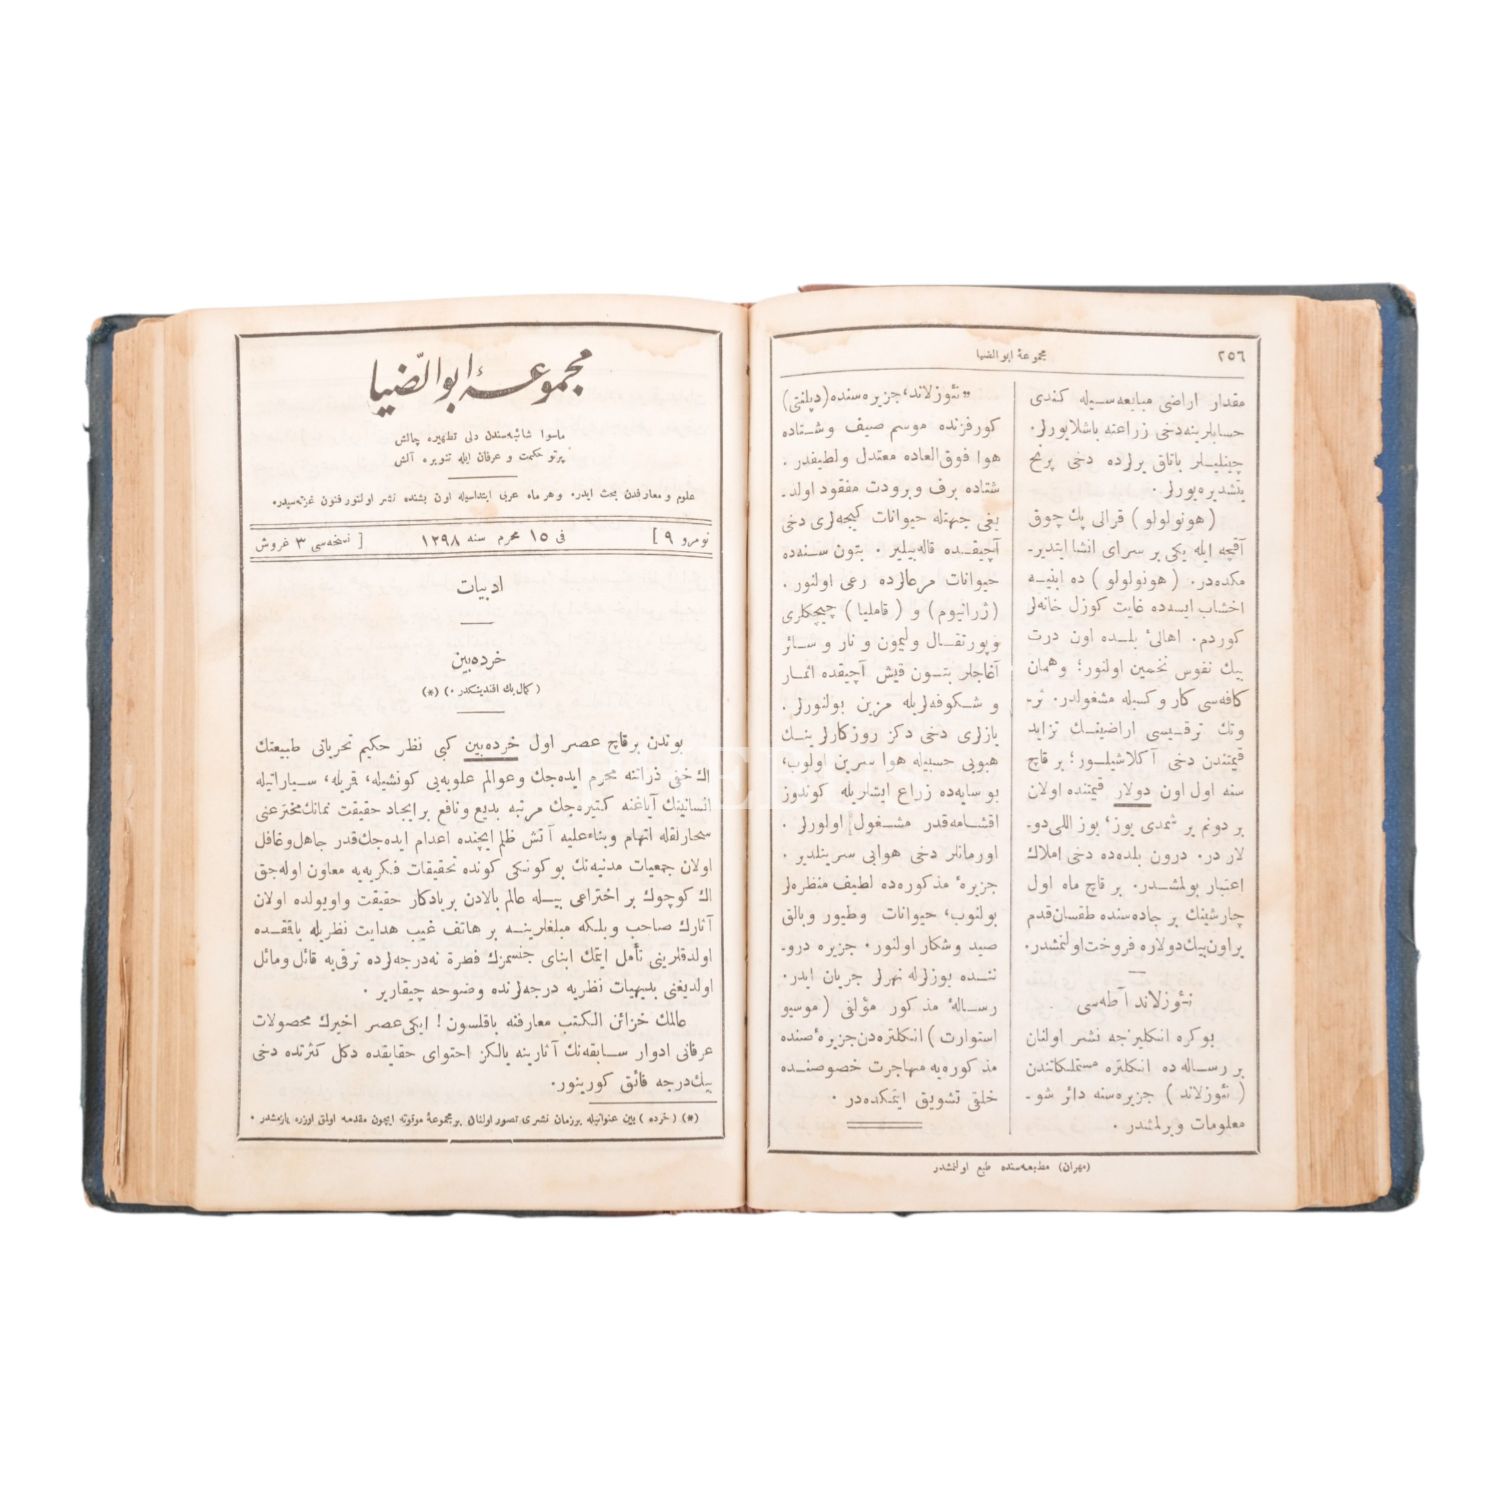 ٢٥٦
مجموعهٔ ابوالضیا
مقدار اراضی مبایعه‌سیله کندی
حسابلرینه دخی زراعته باشلایورلر.
چینلیلر باتاق یرلرده دخی پرنج
یتشدیره‌یورلر.
(هونولولو) قرالی پك چوق
آقچه ایله یکی بر سرای انشا ایتدیر-
مکده‌در. (هونولولو) ده ابنیه
اخشاب ایسه‌ده غایت کوزل خانه‌لر
کوردم. اهالئ بلده اون درت
بیك نفوس تخمین اولنور؛ وهمان
کافه‌سی کار وکسبله مشغولدر. ثر-
وتك ترقیسی اراضینك تزاید
قیمتندن دخی آکلاشیلور؛ بر قاچ
سنه اول اون دولار قیمتنده اولان
بر دونم یر شمدی یوز، یوز اللی دو-
لار در. درون بلده‌ده دخی املاك
اعتبار بولمشدر. بر قاچ ماه اول
چارشینك بر جاده‌سنده طقسان قدم
یر اون بیك دولاره فروخت اولنمشدر.
نئوزلاند آطه‌سی
بو کره انکلیزجه نشر اولنان
بر رساله ده انکلتره مستملکاتندن
(نئوزلاند) جزیره‌سنه دائر شو
معلومات ویرلمشدر.
«نئوزلاند، جزیره‌سنده (دپلنتی)
کورفزنده موسم صیف وشتاده
هوا فوق العاده معتدل ولطیفدر.
شتاده برف وبرودت مفقود اولد-
یغی جهتله حیوانات کیجه‌لری دخی
آچیقده قاله‌بیلیر. بتون سنه‌ده
حیوانات مرعالرده رعی اولنور.
(ژرانیوم) و (قاملیا) چیچکلری
وپورتقال ولیمون و نار و سائر
آغاجلر بتون قیش آچیقده اثمار
و شکوفه‌لریله مزین بولنورلر.
یازلری دخی دکز روزکارلرینك
هبوبی حسبیله هوا سرین اولوب،
بو سایه‌ده زراع ایشلریله کوندوز
اقشامه‌قدر مشغول اولورلر.
اورمانلر دخی هوایی سرینلدیر.
جزیرهٔ مذکوره‌ده لطیف منظره‌لر
بولنوب، حیوانات وطیور وبالق
صید وشکار اولنور. جزیره درو-
ننده بوزلرله نهرلر جریان ایدر.
رسالهٔ مذکور مؤلفی (موسیو
استوارت) انکلتره‌دن جزیرهٔ
مذکوره‌یه مهاجرت خصوصنده
خلقی تشویق ایتمکده‌در.
(مهران) مطبعه‌سنده طبع اولنمشدر
مجموعهٔ ابوالضیا
ماسوا شائبه‌سندن دلی تطهیره چالش
پرتو حکمت و عرفان ایله تنویره آلش
علوم و معارفدن بحث ایدر. وهر ماه عربی ابتداسیله اون بشنده نشر اولنور فنون غزته‌سیدر.
نومرو ٩ ] فی ١٥ محرم سنه ١٢٩٨ [ نسخه‌سی ٣ غروش
ادبیات
خرده‌بین
(کمال بك افندینکدر.) (*)
بوندن بر قاچ عصر اول خرده‌بین کبی نظر حکیم تحریاتی طبیعتك
اك خفی ذراتنه محرم ایده‌جك وعوالم علویه‌یی کونشیله، قمریله، سیاراتیله
انسانیتك آیاغنه کتیره‌جك مرتبه بدیع ونافع بر ایجاد حقیقت نمانك مخترعنی
سحارلقله اتهام وبناءعلیه آتش ظلم ایچنده اعدام ایده‌جك قدر جاهل وغافل
اولان جمعیات مدنیه‌نك بو کونکی کونده تحقیقات فکریه‌یه معاون اوله‌جق
اك کوچوك بر اختراعی بیله عالم بالادن بر یادکار حقیقت واویولده اولان
آثارك صاحب وبلکه مبلغلرینه بر هاتف غیب هدایت نظریله باققده
اولدقلرینی تأمل ایتمك ابنای جنسمزك فطرة نه درجه‌لرده ترقی‌یه قائل ومائل
اولدیغنی بدیهیات نظریه درجه‌لرنده وضوحه چیقاریر.
عالمك خزائن الکتب معارفنه باقلسون! ایکی عصر اخیرك محصولات
عرفانی ادوار سابقه‌نك آثارینه یالکز احتوای حقایقده دکل کثرتده دخی
بیك درجه فائق کورینور.
(*) (خرده) بین عنوانیله بر زمان نشری تصور اولنان بر مجموعهٔ موقوته ایچون مقدمه اولق اوزره یازلمشدر.